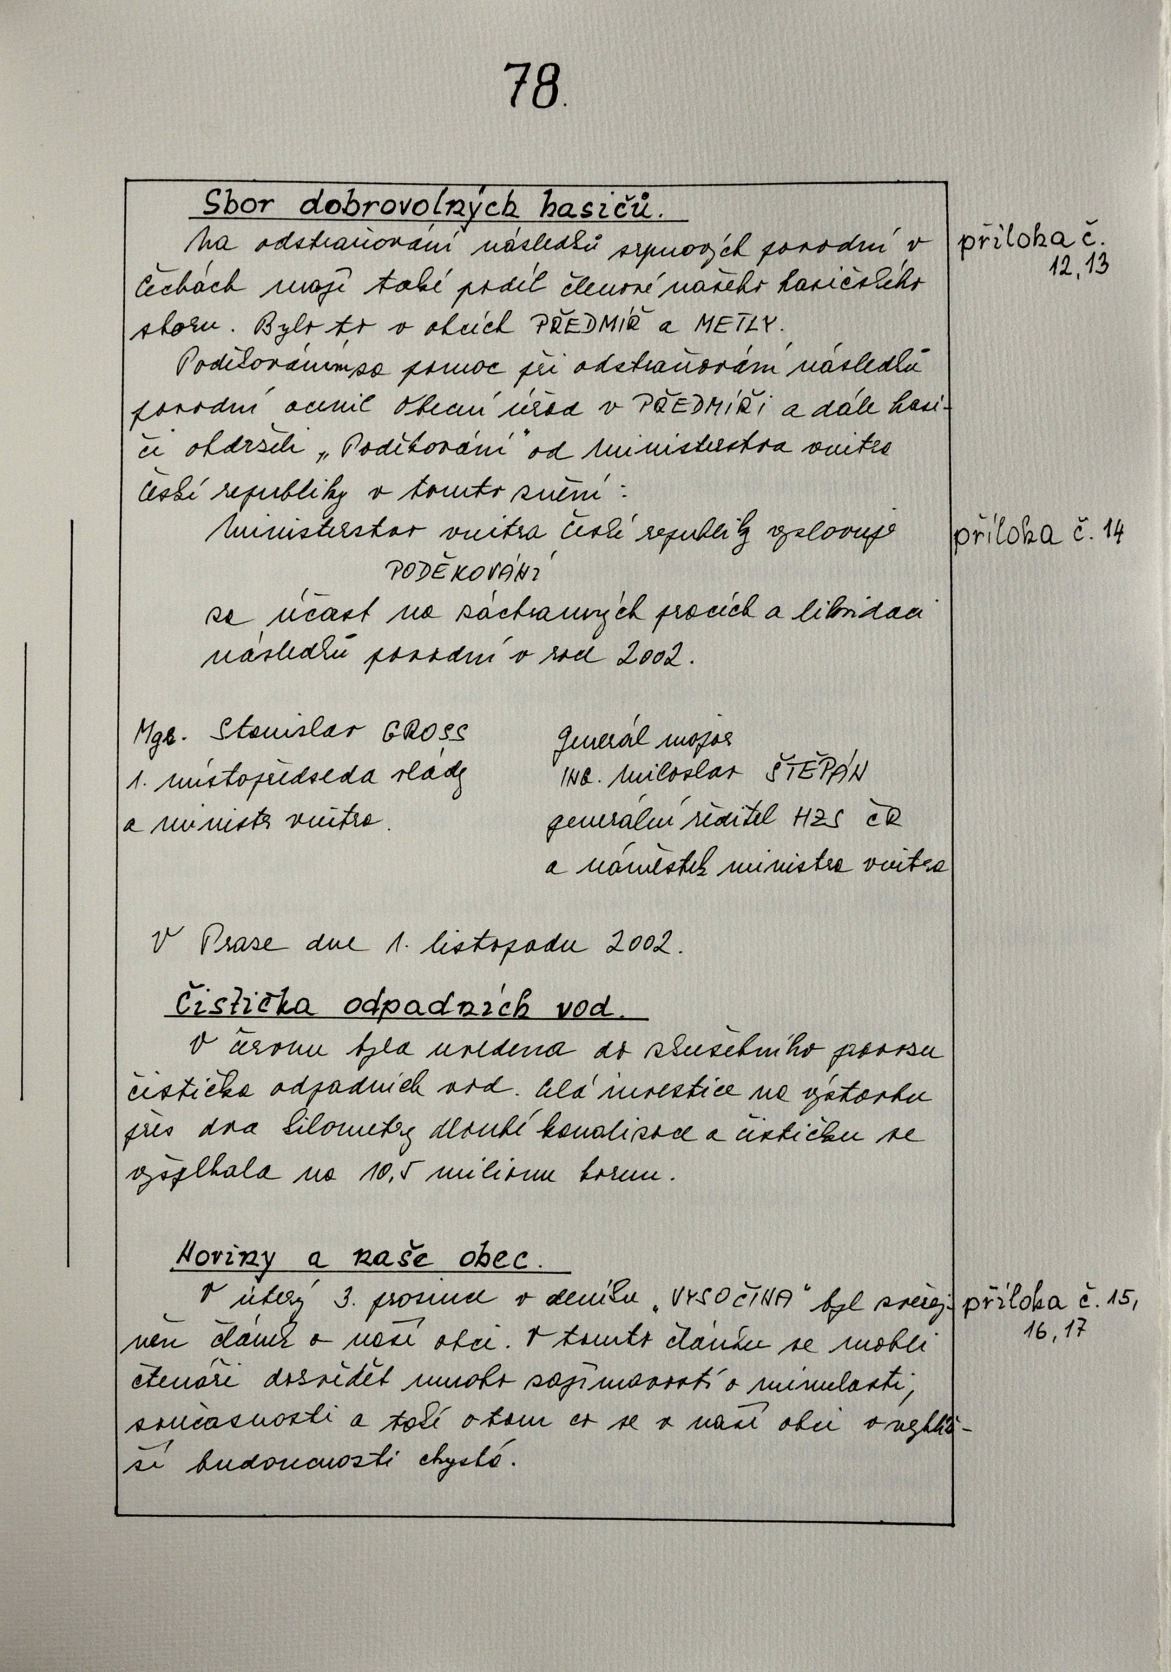 78.
Sbor dobrovolných hasičů.
Na odstraňování následků srpnových povodní v
příloha č.
12,13
Čechách mají také podíl členové našeho hasičského
sboru. Bylo to v obcích PŘEDMÍŘ a METLY.
Poděkování za pomoc při odstraňování následků
povodní ocenil Obecní úřad v PŘEDMÍŘI a dále hasi-
či obdrželi „Poděkování" od Ministerstva vnitra
České republiky v tomto znění:
Ministerstvo vnitra České republiky vyslovuje
příloha č. 14
PODĚKOVÁNÍ
za účast na záchranných pracích a likvidaci
následků povodní v roce 2002.
Mgr. Stanislav GROSS
1. místopředseda vlády
a ministr vnitra.
Generál major
ING. Miloslav ŠTĚPÁN
generální ředitel HZS ČR
a náměstek ministra vnitra
V Praze dne 1. listopadu 2002.
Čistička odpadních vod.
V červnu byla uvedena do zkušebního provozu
čistička odpadních vod. Celá investice na výstavbu
přes dva kilometry dlouhé kanalizace a čističku se
vyšplhala na 10,5 milionu korun.
Noviny a naše obec.
V úterý 3. prosince v deníku „VYSOČINA" byl zveřej-
příloha č. 15,
16,17
něn článek o naší obci. V tomto článku se mohli
čtenáři dozvědět mnoho zajímavostí o minulosti,
současnosti a také o tom co se v naší obci v nejbliž-
ší budoucnosti chystá.